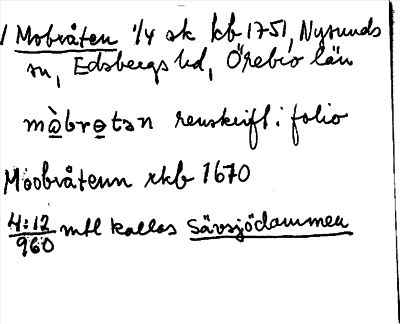 / Mobråten 1/4 sk kb 1751, Nysunds
sn, Edsbergs hd, Örebro län
mꜵ̀brotən renskrift i folio
Moobråtenn rkb 1670
4:12/960 mtl kallas Sävsjödammen